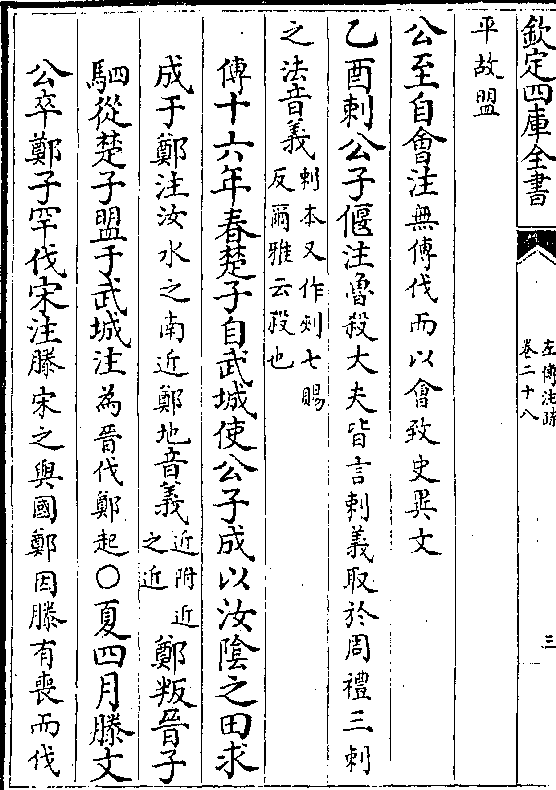 欽定四庫全書
左傳注疏
卷二十八
三
平故盟
公至自會注無傳伐而以會致史異文
乙酉刺公子偃注魯殺大夫皆言刺義取於周禮三刺
之法音義刺本又作刾七賜
反爾雅云殺也
傳十六年春楚子自武城使公子成以汝隂之田求
成于鄭注汝水之南近鄭地音義近附近
之近
鄭叛晉子
駟從楚子盟于武城注為晉伐鄭起○夏四月滕文
公卒鄭子罕伐宋注滕宋之與國鄭因滕有喪而伐